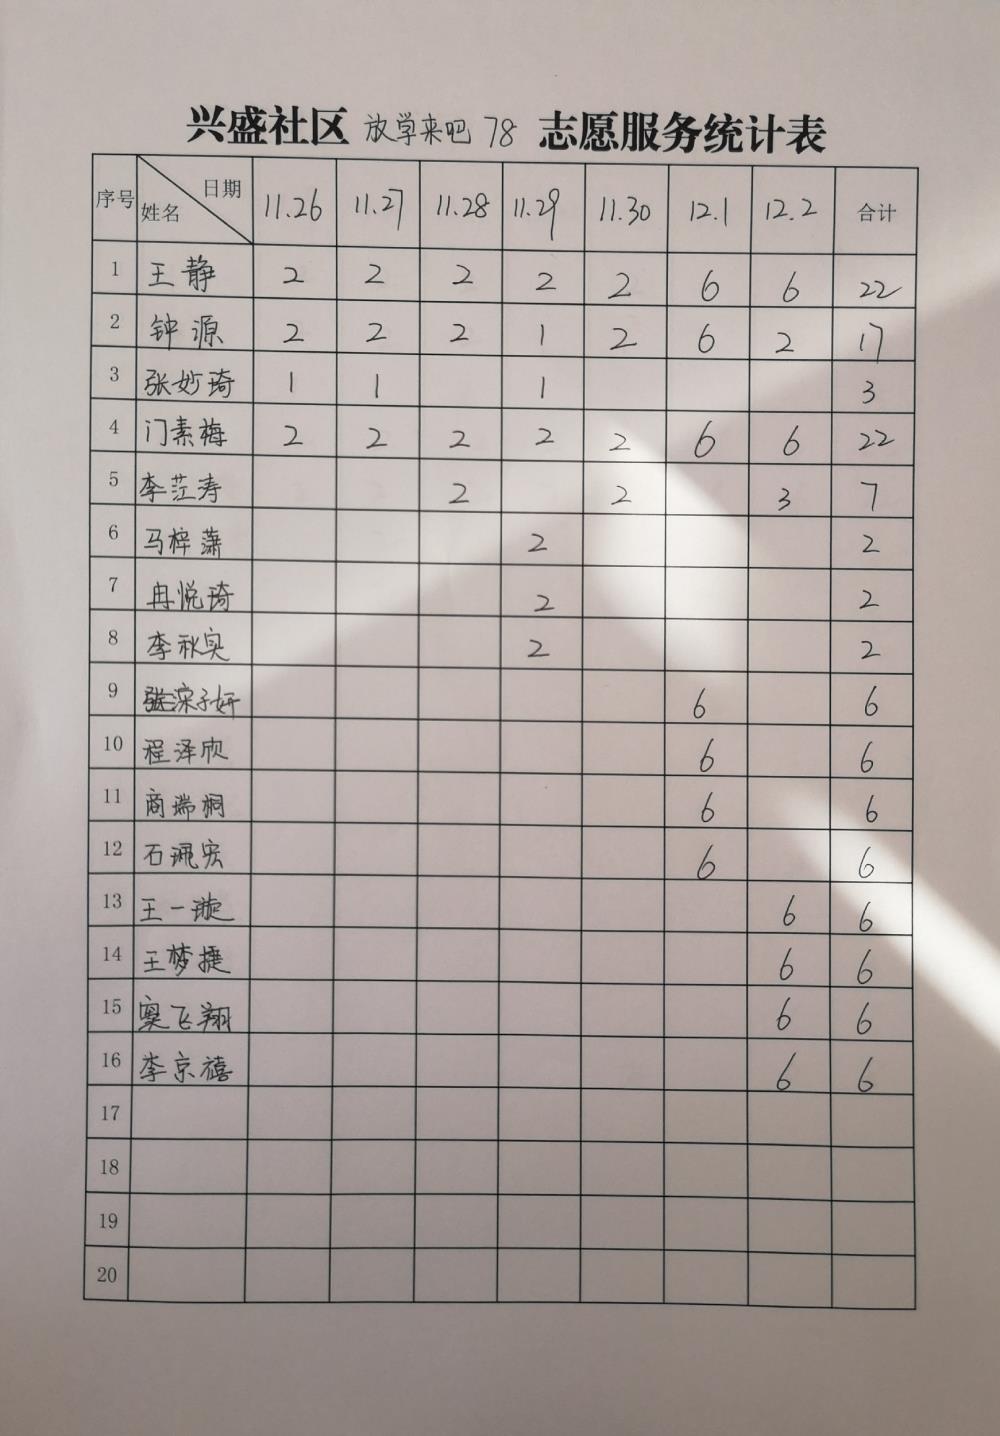 兴盛社区 放学来吧 78 志愿服务统计表
序号 日期 姓名 11.26 11.27 11.28 11.29 11.30 12.1 12.2 合计
1 王静 2 2 2 2 2 6 6 22
2 钟源 2 2 2 1 2 6 2 17
3 张妙琦 1 1 1 3
4 门素梅 2 2 2 2 2 6 6 22
5 李茳涛 2 2 3 7
6 马梓潇 2 2
7 冉悦琦 2 2
8 李秋奕 2 2
9 张滦子妍 6 6
10 程泽欣 6 6
11 商瑞桐 6 6
12 石珮宏 6 6
13 王一璇 6 6
14 王梦捷 6 6
15 飞翔 6 6
16 李京禧 6 6
17
18
19
20